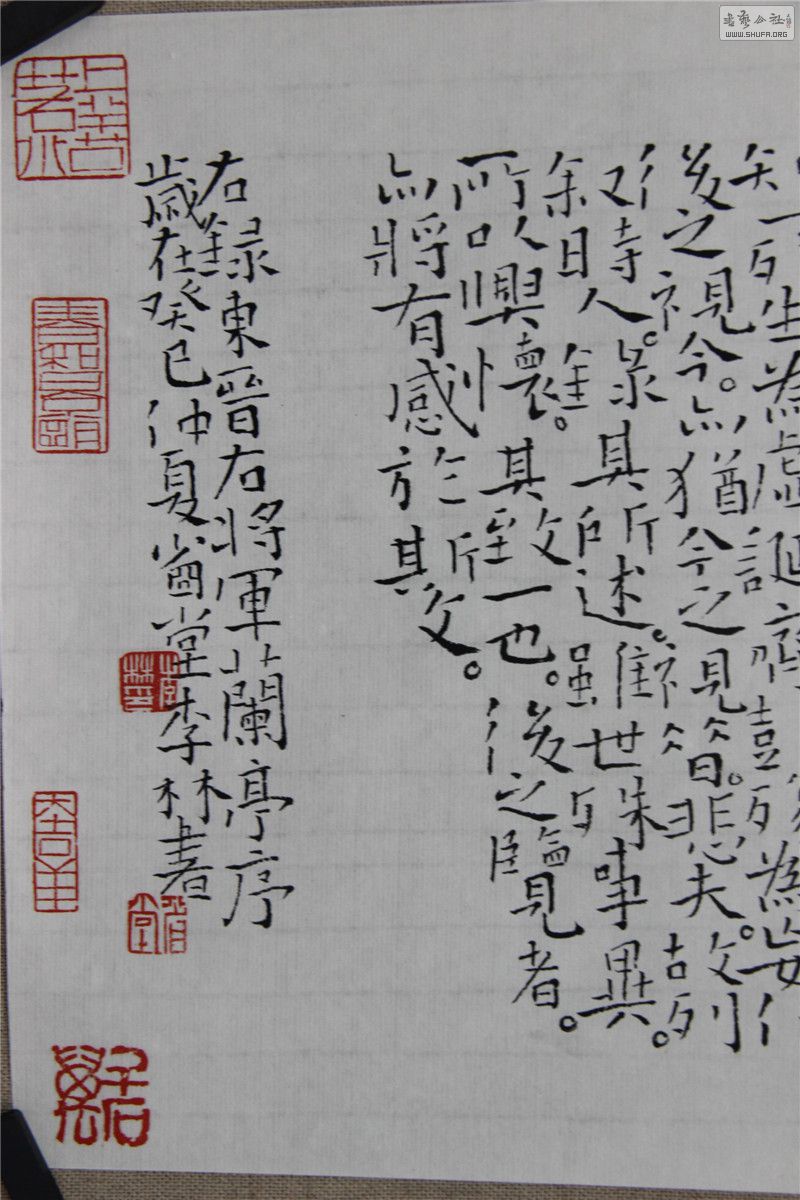 知一死生為虛誕齊彭殤為妄作
後之視今。亦猶今之視昔。悲夫。故列
敘時人。錄其所述。雖世殊事異。
所以興懷。其致一也。後之覽者。
亦將有感於斯文。
右錄東晉右將軍蘭亭序
歲在癸巳仲夏省堂李林書
上善若水
書藝公社
WWW.SHUFA.ORG